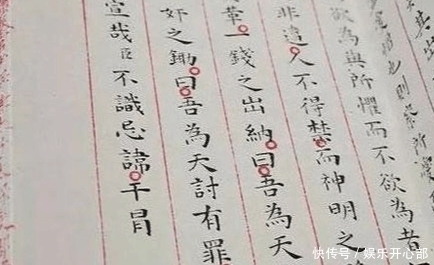 欲為與所懼而不欲為者
非人不得禁而神明之
一錢之出納曰吾為天
奸之鋤曰吾為天討有罪
宣哉臣不識忌諱干冒
快传号/娱乐开心部